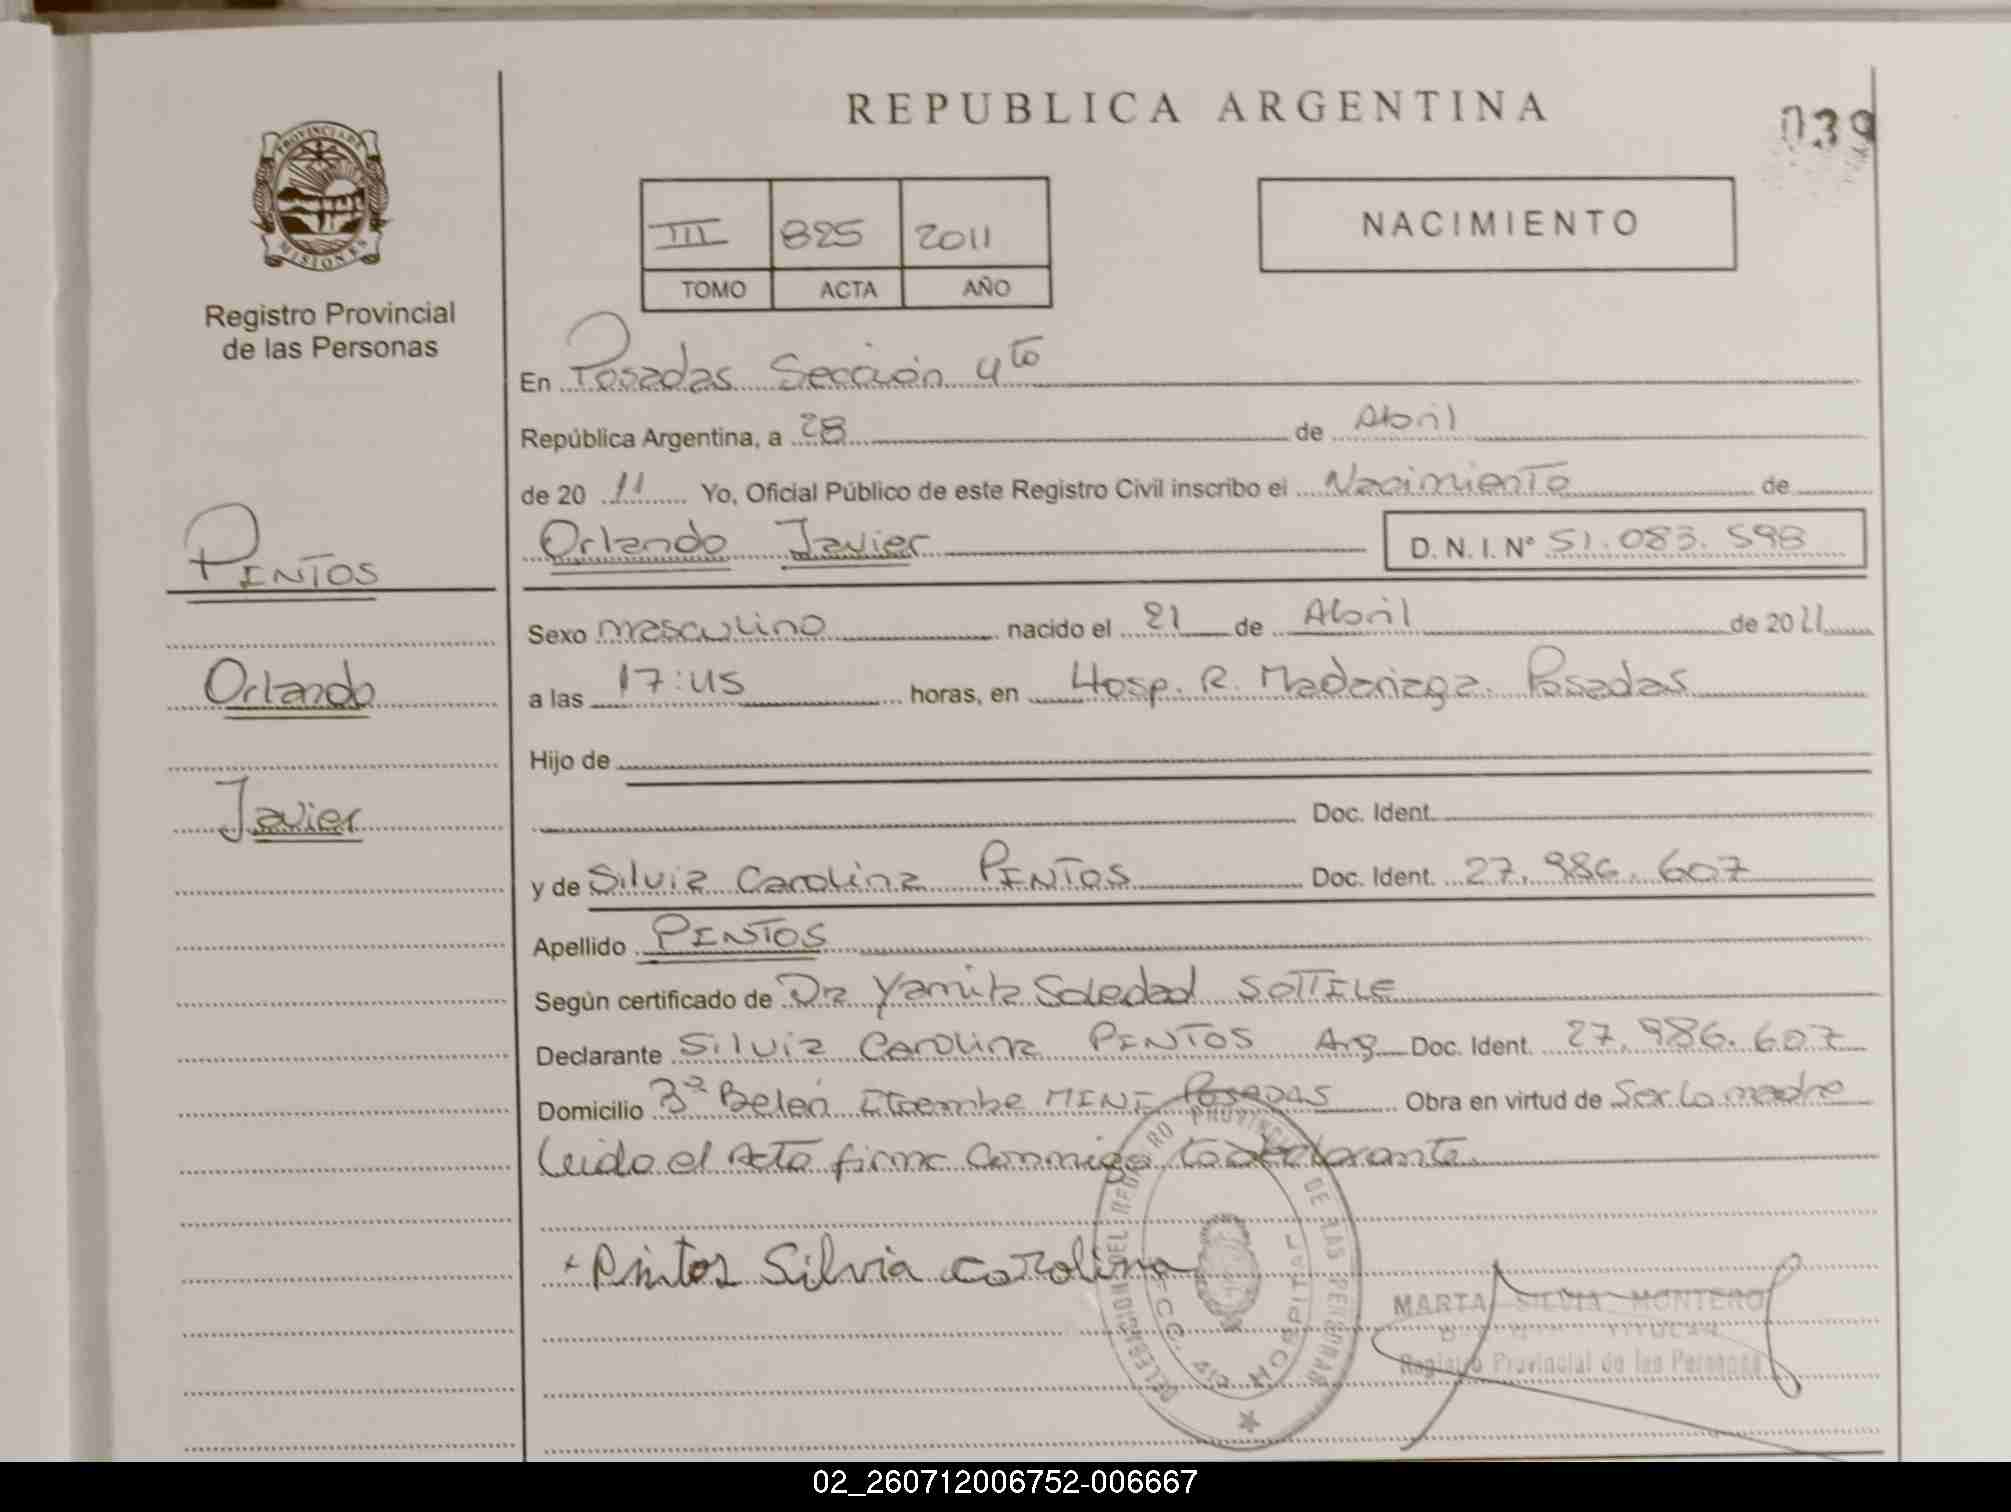 REPUBLICA ARGENTINA
039
PROVINCIA DE
MISIONES
Registro Provincial
de las Personas
III 825 2011
TOMO ACTA AÑO
NACIMIENTO
En Posadas Sección 4to
República Argentina, a 28 de Abril
de 20 11 Yo, Oficial Público de este Registro Civil inscribo el Nacimiento de
Orlando Javier D. N. I. Nº 51.083.598
PINTOS
Orlando
Javier
Sexo masculino nacido el 21 de Abril de 2011
a las 17:45 horas, en Hosp. R. Madariaga. Posadas
Hijo de
Doc. Ident.
y de Silvia Carolina PINTOS Doc. Ident. 27.986.607
Apellido PINTOS
Según certificado de Dra Yamila Soledad SOTTILE
Declarante Silvia Carolina PINTOS Arg Doc. Ident. 27.986.607
Domicilio Bº Belén Itaembe MINI POSADAS Obra en virtud de Ser la madre
Leido el Acta firma conmigo la declarante
Pintos Silvia Carolina
DELEGACION DEL REGISTRO PROVINCIAL DE LAS PERSONAS
SECC. 4ta HOSPITAL
MARTA SILVIA MONTERO
TITULAR
Registro Provincial de las Personas
02_260712006752-006667